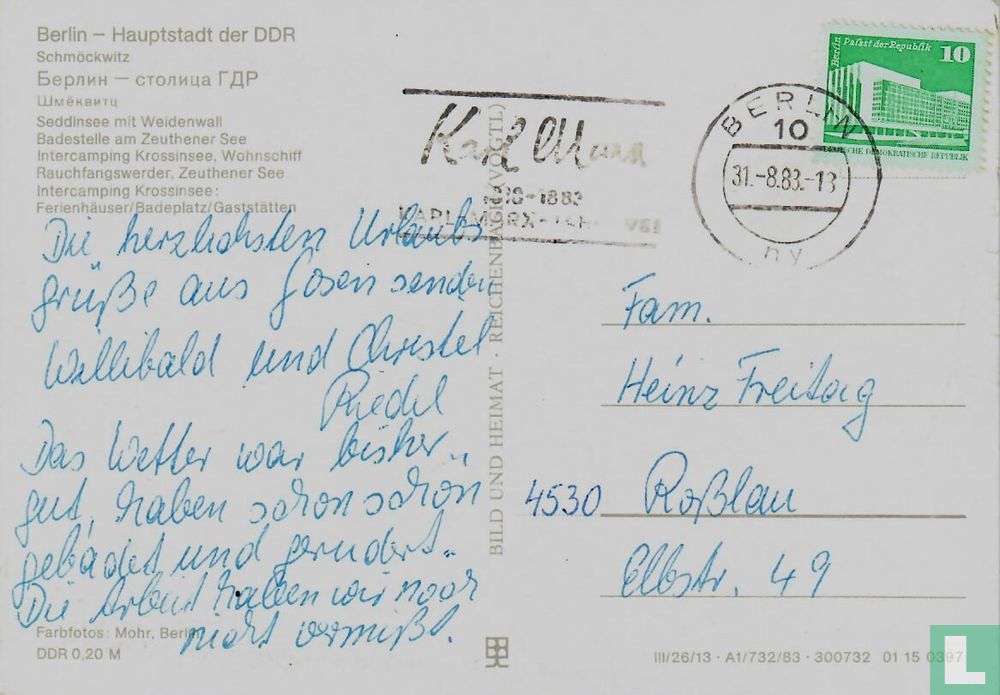 Berlin – Hauptstadt der DDR
Schmöckwitz
Берлин — столица ГДР
Шмёквитц
Seddinsee mit Weidenwall
Badestelle am Zeuthener See
Intercamping Krossinsee, Wohnschiff
Rauchfangswerder, Zeuthener See
Intercamping Krossinsee:
Ferienhäuser/Badeplatz/Gaststätten
Die herzlichsten Urlaubs
grüße aus Gosen senden
Willibald und Christel
Riedel
Das Wetter war bisher
gut, haben schon schön
gebadet und gerudert.
Die Arbeit haben wir noch
nicht vermißt.
Farbfotos: Mohr, Berlin
DDR 0,20 M
BILD UND HEIMAT · REICHENBACH (VOGTL)
Karl Marx
1818-1883
KARL-MARX-
BERLIN
10
31.-8.83.-13
ny
Berlin Palast der Republik 10
DEUTSCHE DEMOKRATISCHE REPUBLIK
Fam.
Heinz Freitag
4530 Roßlau
Elbstr. 49
III/26/13 · A1/732/83 · 300732 01 15 0397
L